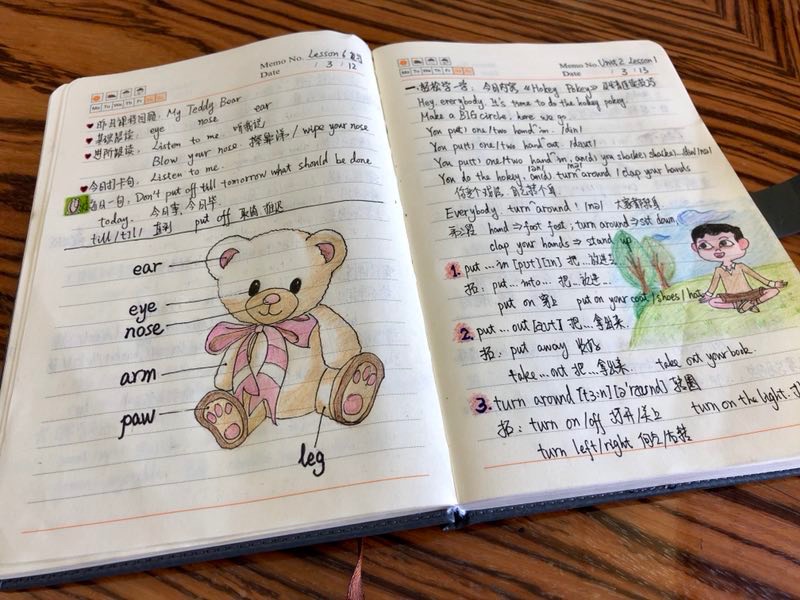 Memo No. Lesson 6 复习
Mo Tu We Th Fr Sa Su
Date / 3 / 12
♥ 昨日课程回顾: My Teddy Bear
♥ 基础晨读: eye nose ear
♥ 进阶晨读: Listen to me. 听我说
Blow your nose. 擤鼻涕 / wipe your nose
♥ 今日打卡句: Listen to me.
每日一句: Don't put off till tomorrow what should be done
today. 今日事,今日毕
till /tɪl/ 直到 put off 取消 推迟
ear
eye
nose
arm
paw
leg
Memo No. Unit 2 Lesson 1
Mo Tu We Th Fr Sa Su
Date / 3 / 13
今日内容《Hokey Pokey》
Hey, everybody. It's time to do the hokey pokey.
Make a BIG circle, here we go.
You put(s) one/two hand in. /dɪn/
You put(s) one/two hand out. /daut/
You put(s) one/two hand in and(s) you shake(s) shake(s).
You do the hokey, and(s) turn around / clap your hands
Everybody turn around!
hand ⇒ foot feet; turn around ⇒ sit down,
clap your hands ⇒ stand up
1. put...in [put][ɪn] 把...放进
拓: put...into... 把...放进...
put on 穿上 put on your coat / shoes / hat
2. put...out [aut] 把...拿出来.
拓: put away 收拾
take...out 把...拿出来. take out your book.
3. turn around [tɜ:n][ə'raund] 转圈
拓: turn on/off 打开/关上 turn on the light.
turn left/right 向左/右转